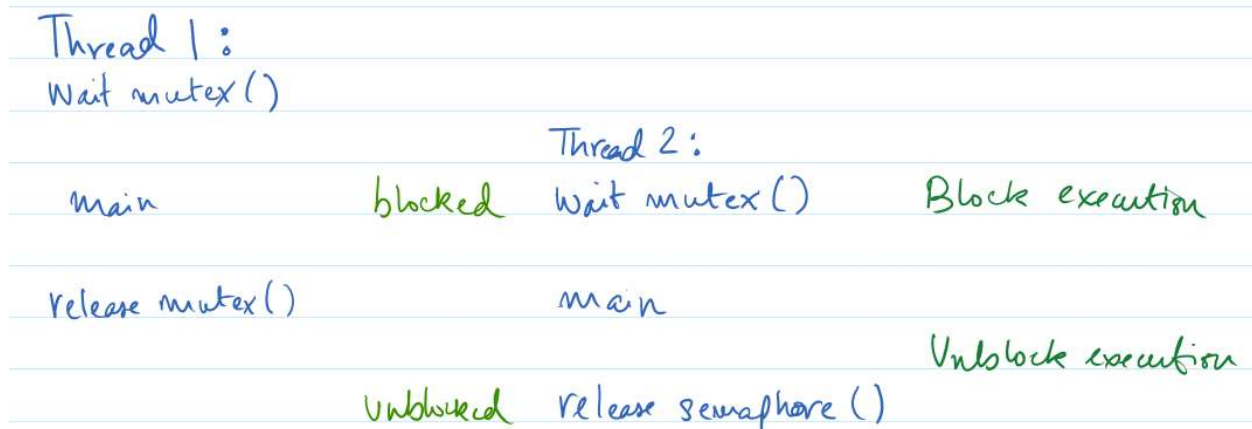 Thread 1:
Wait mutex()
Thread 2:
main blocked Wait mutex() Block execution
release mutex() main
Unblock execution
unblocked release semaphore()